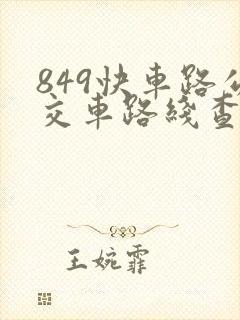 849快車路公
交車路綫查
王婉霏